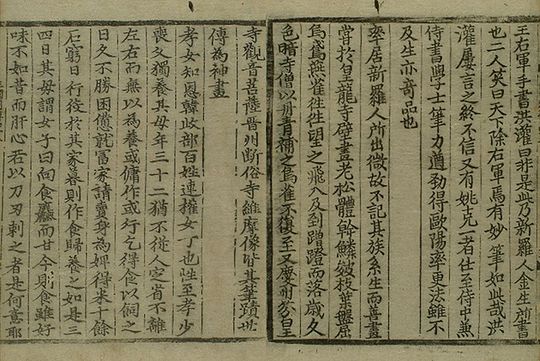 王右軍手書洪灌曰非是此乃新羅人金生所書
也二人笑曰天下除右軍焉有妙筆如此哉洪
灌屢言之終不信又有姚克一者仕至侍中兼
侍書學士筆力遒勁得歐陽率更法雖不
及生亦奇品也
率居新羅人所出微故不記其族系生而善畫
嘗於皇龍寺壁畫老松體幹鱗皴枝葉盤屈
烏鳶燕雀往往望之飛入及到蹭蹬而落歲久
色暗寺僧以丹青補之烏雀不復至又慶州芬皇
寺觀音菩薩晉州斷俗寺維摩像皆其筆蹟世
傳爲神畫
孝女知恩韓歧部百姓連權女子也性至孝少
喪父獨養其母年三十二猶不從人定省不離
左右而無以爲養或傭作或行乞得食以飼之
日久不勝困憊就富家請賣身爲婢得米十餘
石窮日行役於其家暮則作食歸養之如是三
四日其母謂女子曰向食麤而甘今則食雖好
味不如昔而肝心若以刀刃刺之者是何意耶